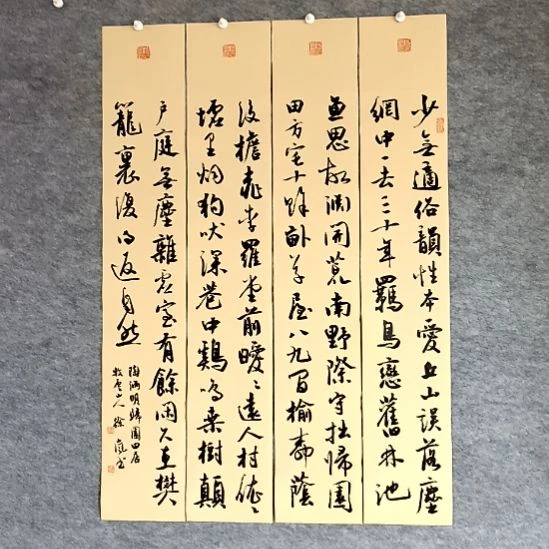 少無適俗韻性本愛丘山誤落塵
網中一去三十年羈鳥戀舊林池
魚思故淵開荒南野際守拙歸園
田方宅十餘畝草屋八九間榆柳蔭
後檐桃李羅堂前曖〻遠人村依〻
墟里烟狗吠深巷中鷄鳴桑樹顛
戶庭無塵雜虛室有餘閑久在樊
籠裏復得返自然
陶淵明歸園田居
山人徐書